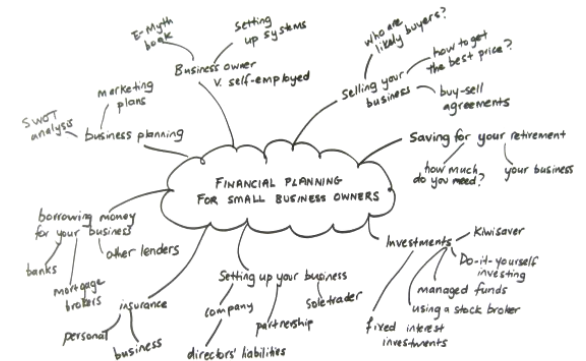 FINANCIAL PLANNING
FOR SMALL BUSINESS OWNERS
Business owner
v. self-employed
E-Myth
book
Setting
up systems
Selling your
business
who are
likely buyers?
how to get
the best price?
buy-sell
agreements
Saving for your retirement
how much
do you need?
your business
Investments
Kiwisaver
Do-it-yourself
investing
managed funds
using a stock broker
fixed interest
investments
Setting up your business
company
directors' liabilities
partnership
sole trader
insurance
personal
business
borrowing money
for your business
banks
mortgage
brokers
other lenders
business planning
SWOT
analysis
marketing
plans